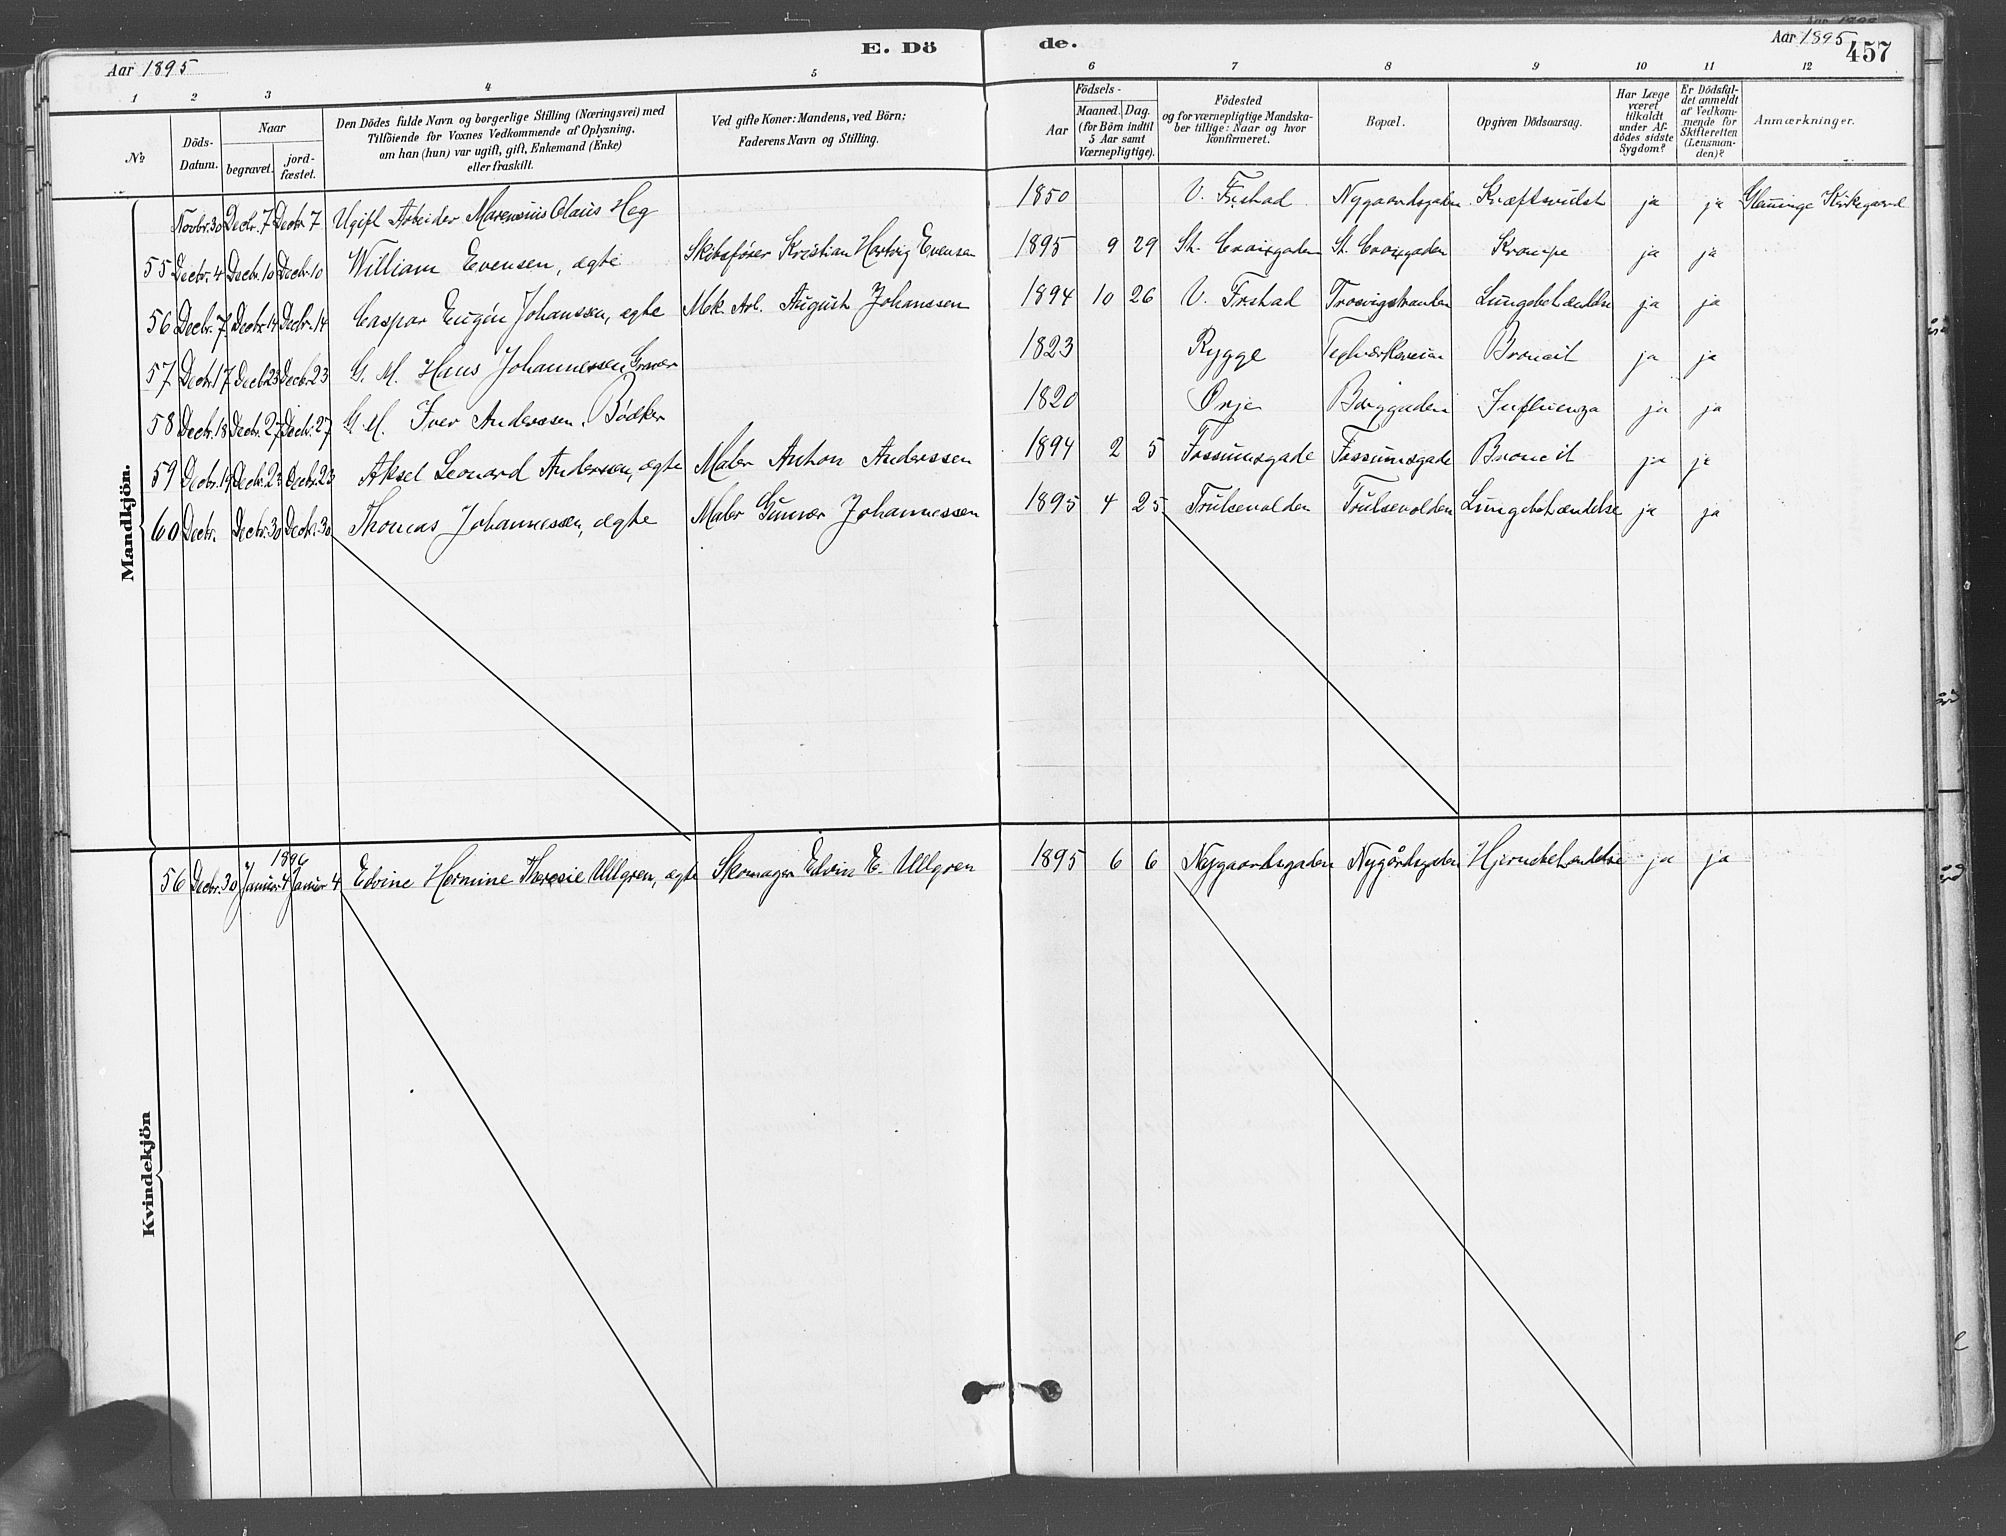 Aar 1895
E. Dö
de.
Aar 1895
457
1 2 3 4 5 6 7 8 9 10 11 12
No
Döds-Datum.
Naar
begravet.
jord-fæstet.
Den Dödes fulde Navn og borgerlige Stilling (Næringsvei) med
Tilföiende for Voxnes Vedkommende af Oplysning,
om han (hun) var ugift, gift, Enkemand (Enke)
eller fraskilt.
Ved gifte Koner: Mandens, ved Börn;
Faderens Navn og Stilling.
Födsels-
Aar
Maaned. Dag.
(for Börn indtil
5 Aar samt
Værnepligtige).
Födested
og for værnepligtige Mandska-
ber tillige: Naar og hvor
konfirmeret.
Bopæl.
Opgiven Dödsaarsag.
Har Læge
været
tilkaldt
under Af-
dödes sidste
Sygdom?
Er Dödsfal-
det anmeldt
af Vedkom-
mende for
Skifteretten
(Lensman-
den)?
Anmærkninger.
Mandkjön.
Novbr. 30 Decbr. 7 Decbr 7 Ugift Arbeider Marensius Olaus Heg 1850 V. Frstad Nygaardsgaden Kræftsvulst ja ja Glemminge Kirkegaard
55 Decbr. 4 Decbr. 10 Decbr. 10 William Evensen, ægte Skibsfører Kristian Hartvig Evensen 1895 9 29 St. Croixgaden St. Croixgaden Krampe ja ja
56 Decbr. 7. Decbr. 14 Decbr. 14 Caspar Eugén Johanssen, ægte Mek. Arb. August Johanssen 1894 10 26 V. Frstad Trosvigstranden Lungebetændelse ja ja
57 Decbr. 17 Decbr. 23 Decbr. 23 G. M. Hans Johannessen Graver 1823 Rygge Teglværksveien Broncit ja ja
58 Decbr. 18 Decbr. 27 Decbr. 27 G. M. Iver Anderssen. Bødker 1820 Ørje Borggaden Influenza ja ja
59 Decbr. 19 Decbr. 23 Decbr. 23 Aksel Leonard Anderssen, ægte Maler Anton Anderssen 1894 2 5 Fossumsgade Fossumsgade Broncit ja ja
60 Decbr. Decbr. 30 Decbr. 30 Thomas Johannessen, ægte Maler Gunvor Johannessen 1895 4 25 Trulsevolden Trulsevolden Lungebetændelse ja ja
Kvindekjön
1896
56 Decbr. 30 Januar 4 Januar 4 Edvine Hermine Theresie Ullgren, ægte Skomager Edvin E. Ullgren 1895 6 6 Nygaardsgaden Nygårdsgaden Hjernebetændelse ja ja